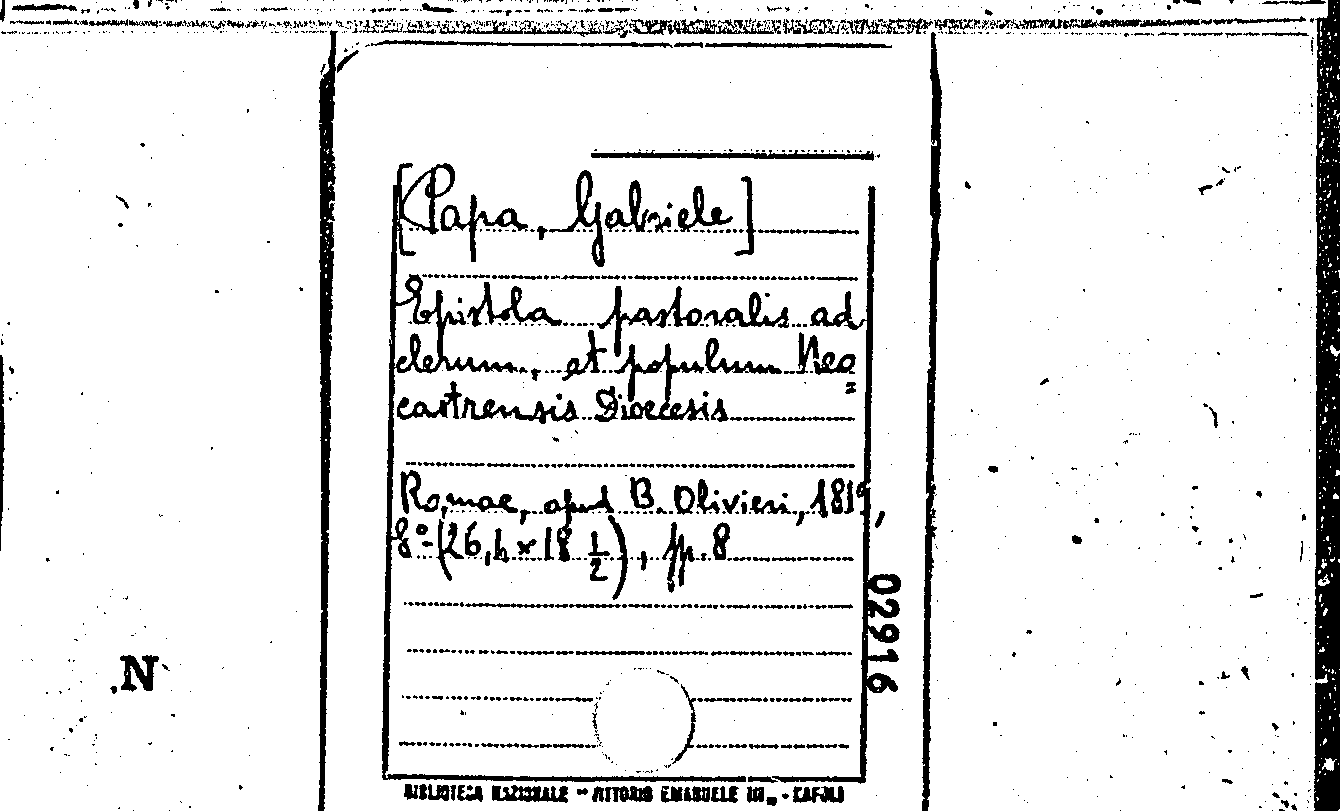 [Papa, Gabriele]
Epistola pastoralis ad
clerum, et populum Neo=
castrensis Dioecesis
Romae, apud B. Olivieri, 1819,
8°-(26,4 × 18 1/2), pp. 8
02916
.N
BIBLIOTECA NAZIONALE "VITTORIO EMANUELE III" - NAPOLI